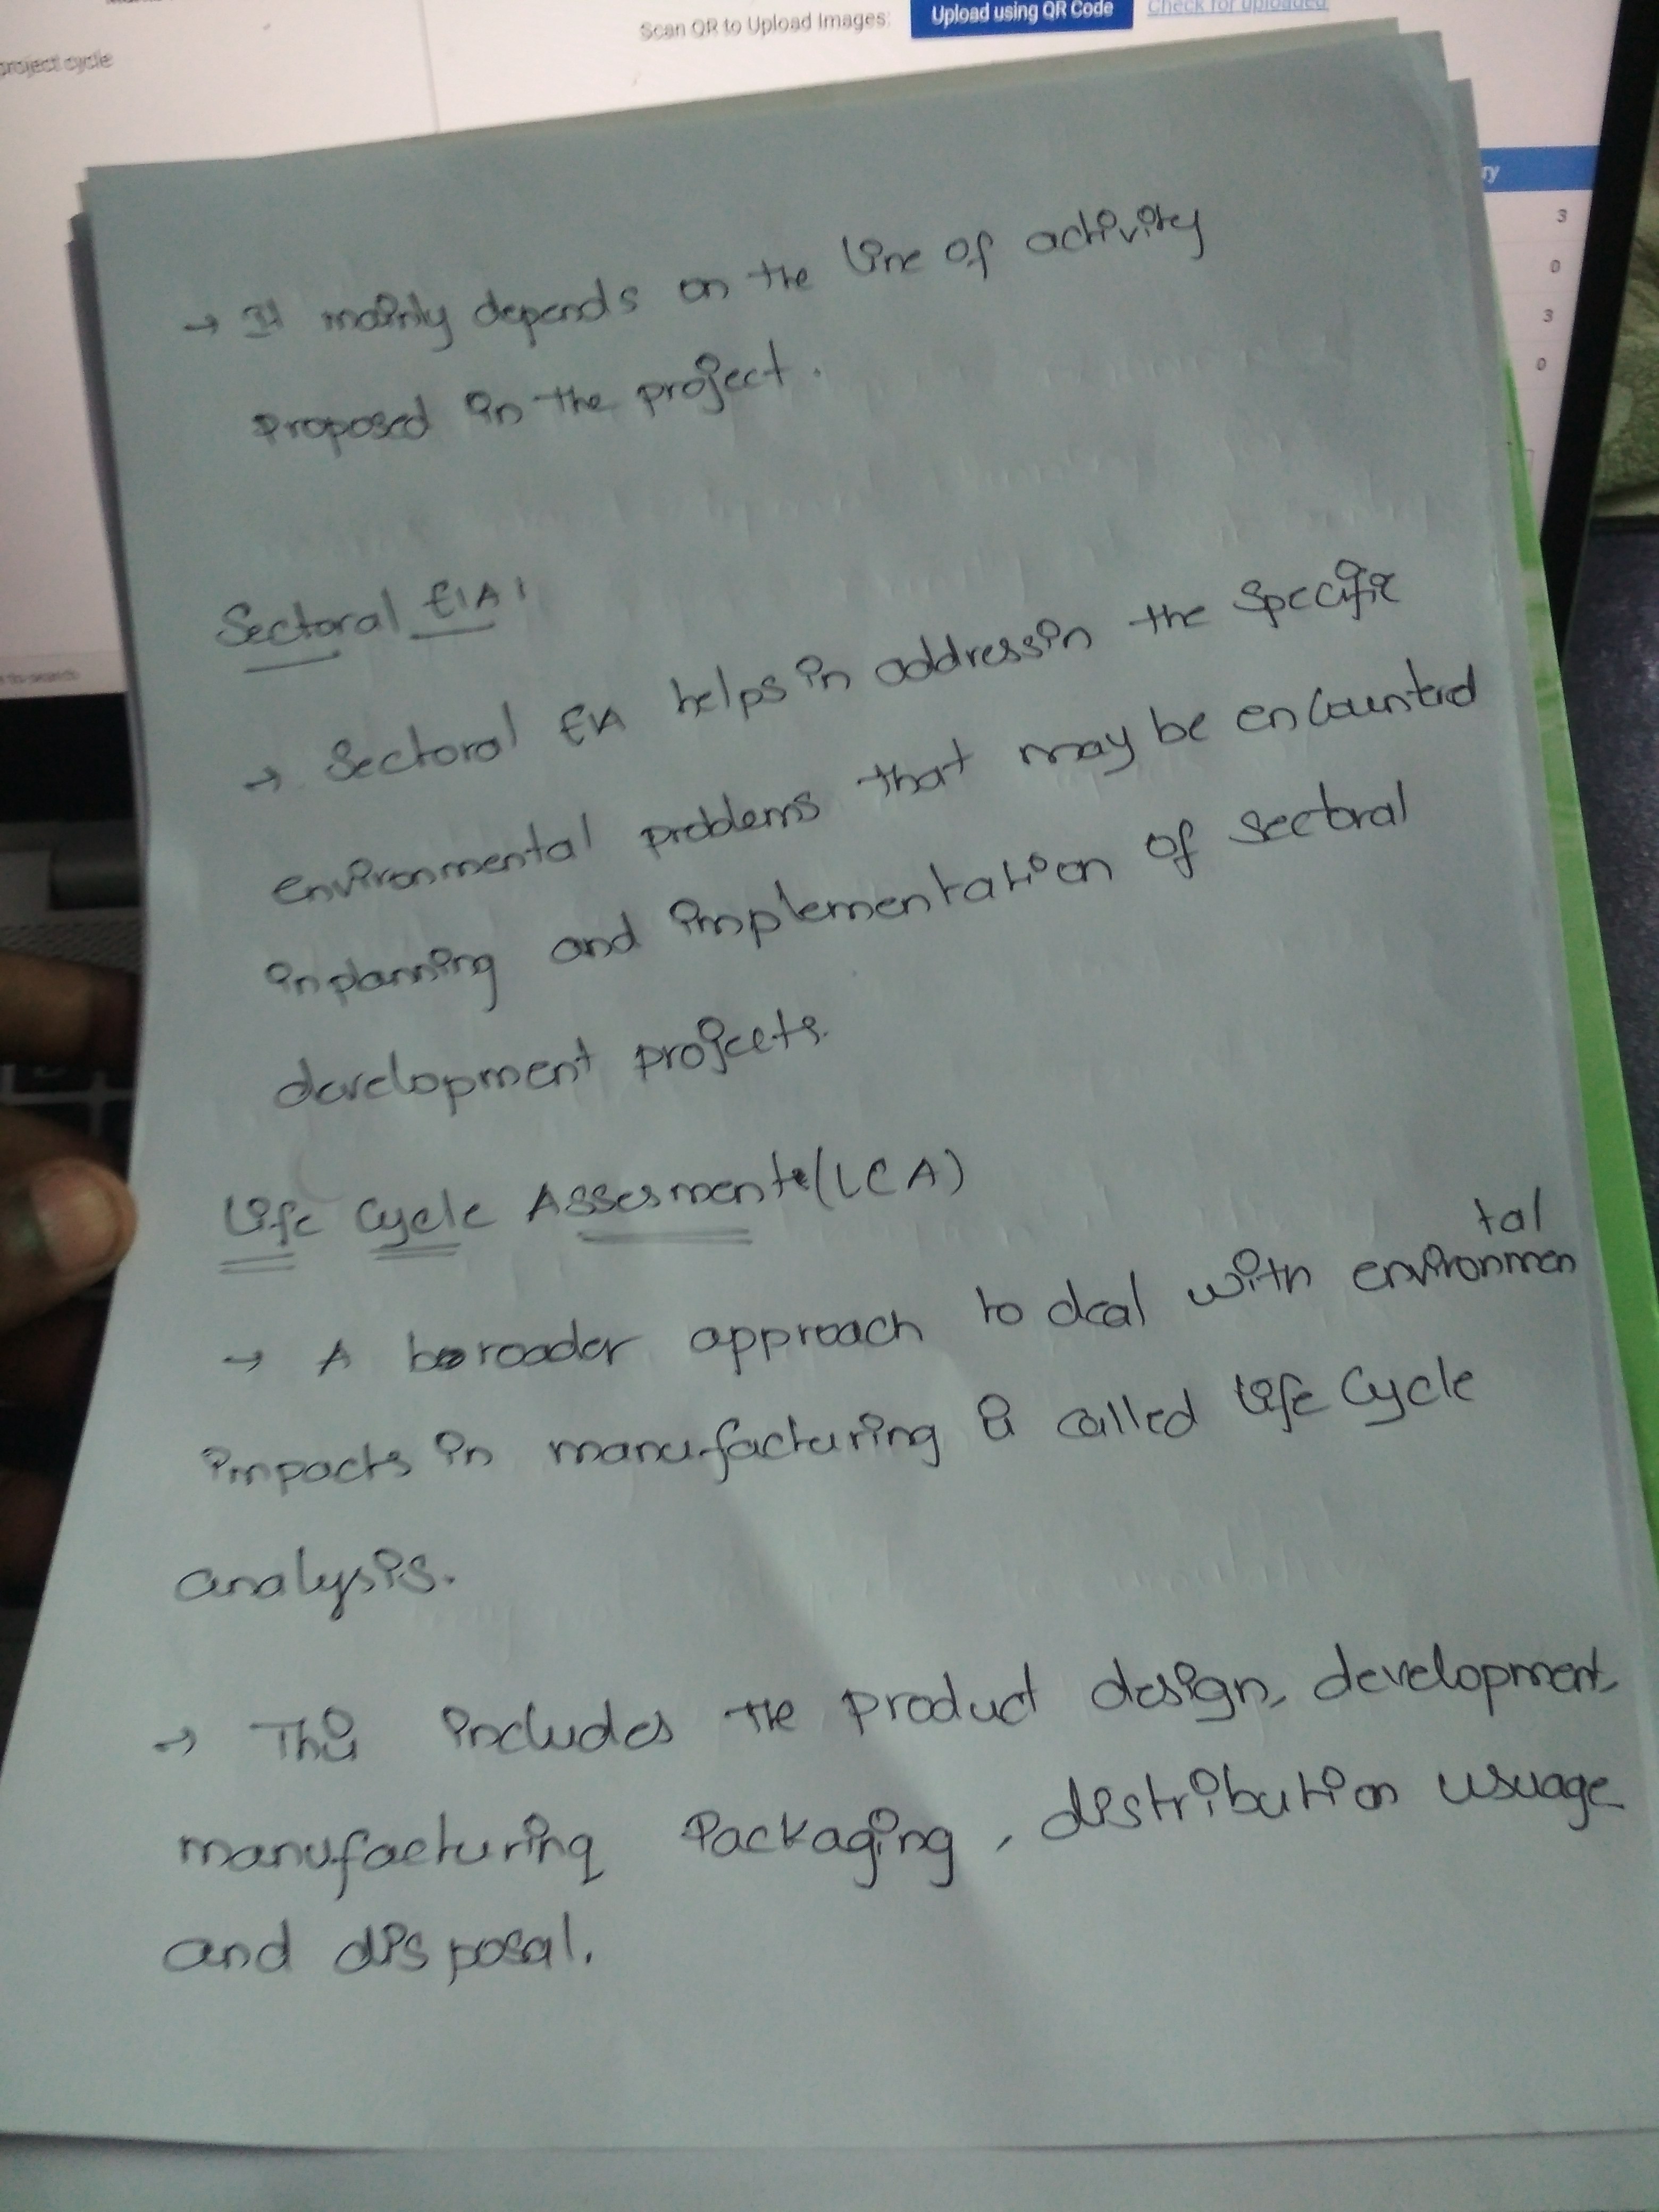 project cycle
Scan QR to Upload Images:
Upload using QR Code
Check for uploaded
3
0
3
0
→ It mainly depends on the line of activity
proposed in the project.
Sectoral EIA:
→ Sectoral EIA helps in addressin the specific
environmental problems that may be encounterd
in planning and implementation of sectoral
development projects.
Life Cycle Assesment (LCA)
→ A broader approach to deal with environmental
impacts in manufacturing is called life cycle
analysis.
→ This includes the product design, development,
manufacturing Packaging, distribution usuage
and disposal.